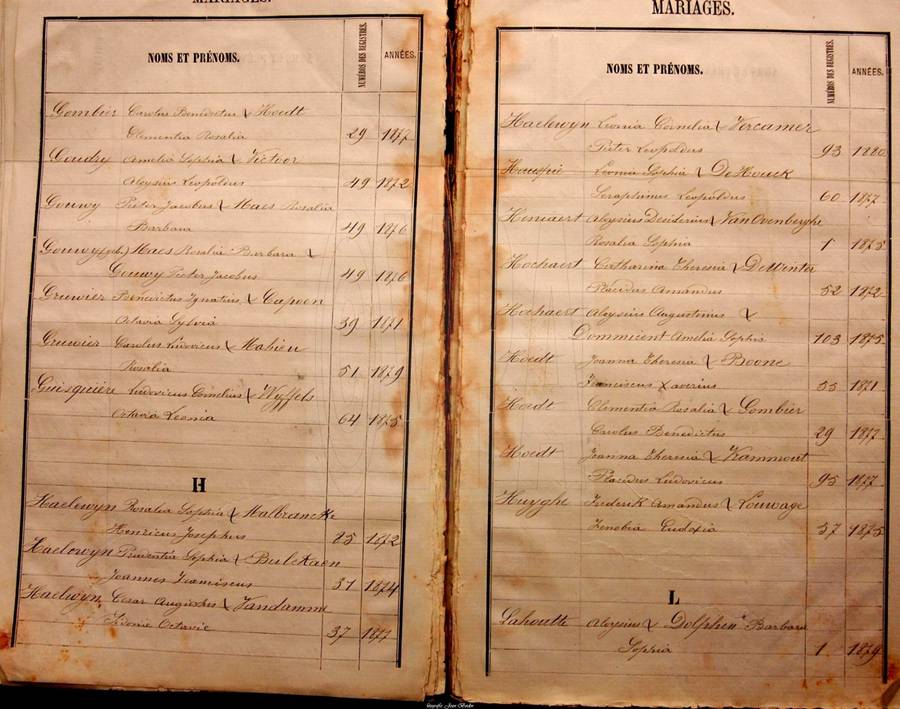 MARIAGES.
NOMS ET PRÉNOMS. NUMÉROS DES REGISTRES. ANNÉES.
Gombier Carolus Benedictus & Hoedt
Clementia Rosalia 29 1877
Coudry Amelia Sophia & Victoor
Aloysius Leopoldus 49 1872
Gouwy Pieter Jacobus & Maes Rosalia
Barbara 49 1876
Gouwy Maes Rosalia Barbara &
Gouwy Pieter Jacobus 49 1876
Gruwier Benedictus Ignatius & Capoen
Octavia Sylvia 39 1871
Gruwier Carolus Ludovicus & Mahieu
Rosalia 51 1879
Guisquière Ludovicus Cornelius & Wyffels
Octavia Leonia 64 1875
H
Haelewyn Rosalia Sophia & Malbrancke
Henricus Josephus 25 1872
Haelewyn Prudentia Sophia & Bulckaen
Joannes Franciscus 31 1874
Haelwyn Cesar Augustus & Vandamme
Sidonie Octavie 37 1877
MARIAGES.
NOMS ET PRÉNOMS. NUMÉROS DES REGISTRES. ANNÉES.
Haelewyn Leonia Cornelia & Vercamer
Pieter Leopoldus 93 1880
Leonia Sophia & De Houck
Seraphinus Leopoldus 60 1877
Hennaert Aloysius Desiderius & Van Overberghe
Rosalia Sophia 1 1875
Hochaert Catharina Theresia & DeWinter
Placidus Amandus 52 1872
Hochaert Aloysius Augustinus &
Dommicent Amelia Sophie 103 1875
Hoedt Joanna Theresia & Boone
Franciscus Xaverius 55 1871
Hoedt Clementia Rosalia & Gombier
Carolus Benedictus 29 1877
Hoedt Joanna Theresia & Kammout
Placidus Ludovicus 95 1877
Huyghe Frederik Amandus & Louwage
Zenobia Eudoxia 57 1875
L
Lahoutte Aloysius & Dolphen Barbara
Sophia 1 1879